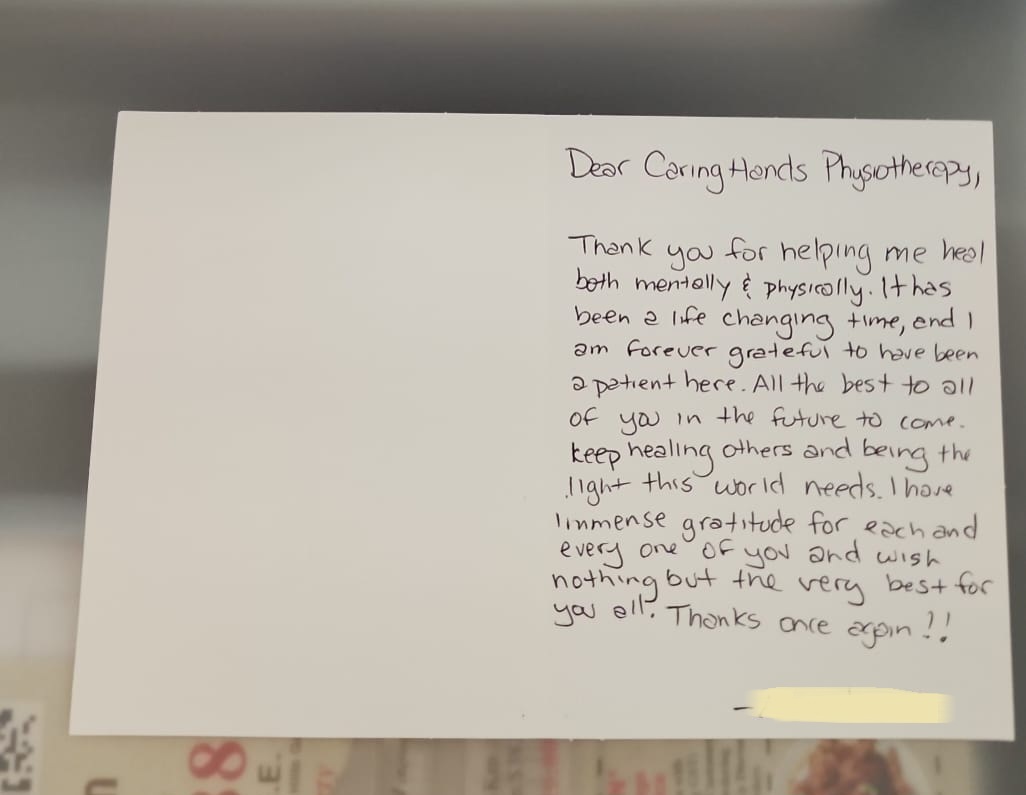 Dear Caring Hands Physiotherapy,
Thank you for helping me heal
both mentally & physically. It has
been a life changing time, and I
am forever grateful to have been
a patient here. All the best to all
of you in the future to come.
keep healing others and being the
light this world needs. I have
immense gratitude for each and
every one of you and wish
nothing but the very best for
you all. Thanks once again!!
-
8
.E.